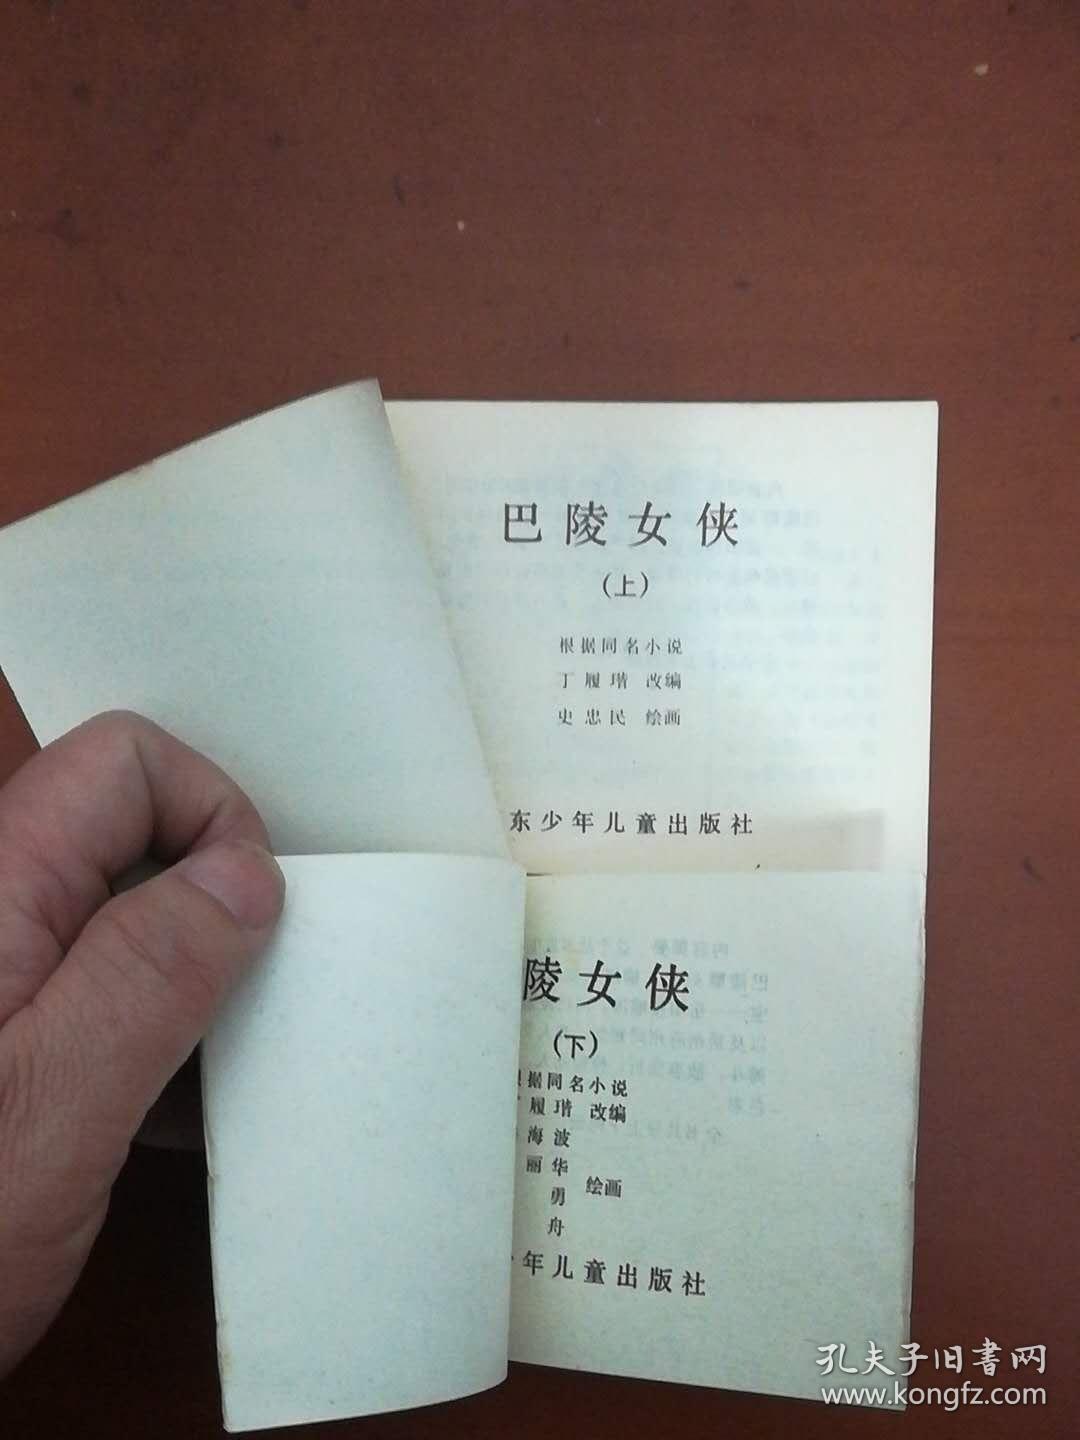 巴陵女侠
(上)
根据同名小说
丁履瑎 改编
史忠民 绘画
东少年儿童出版社
陵女侠
(下)
据同名小说
履瑎 改编
海波
丽华
勇
舟
绘画
年儿童出版社
孔夫子旧書网
www.kongfz.com